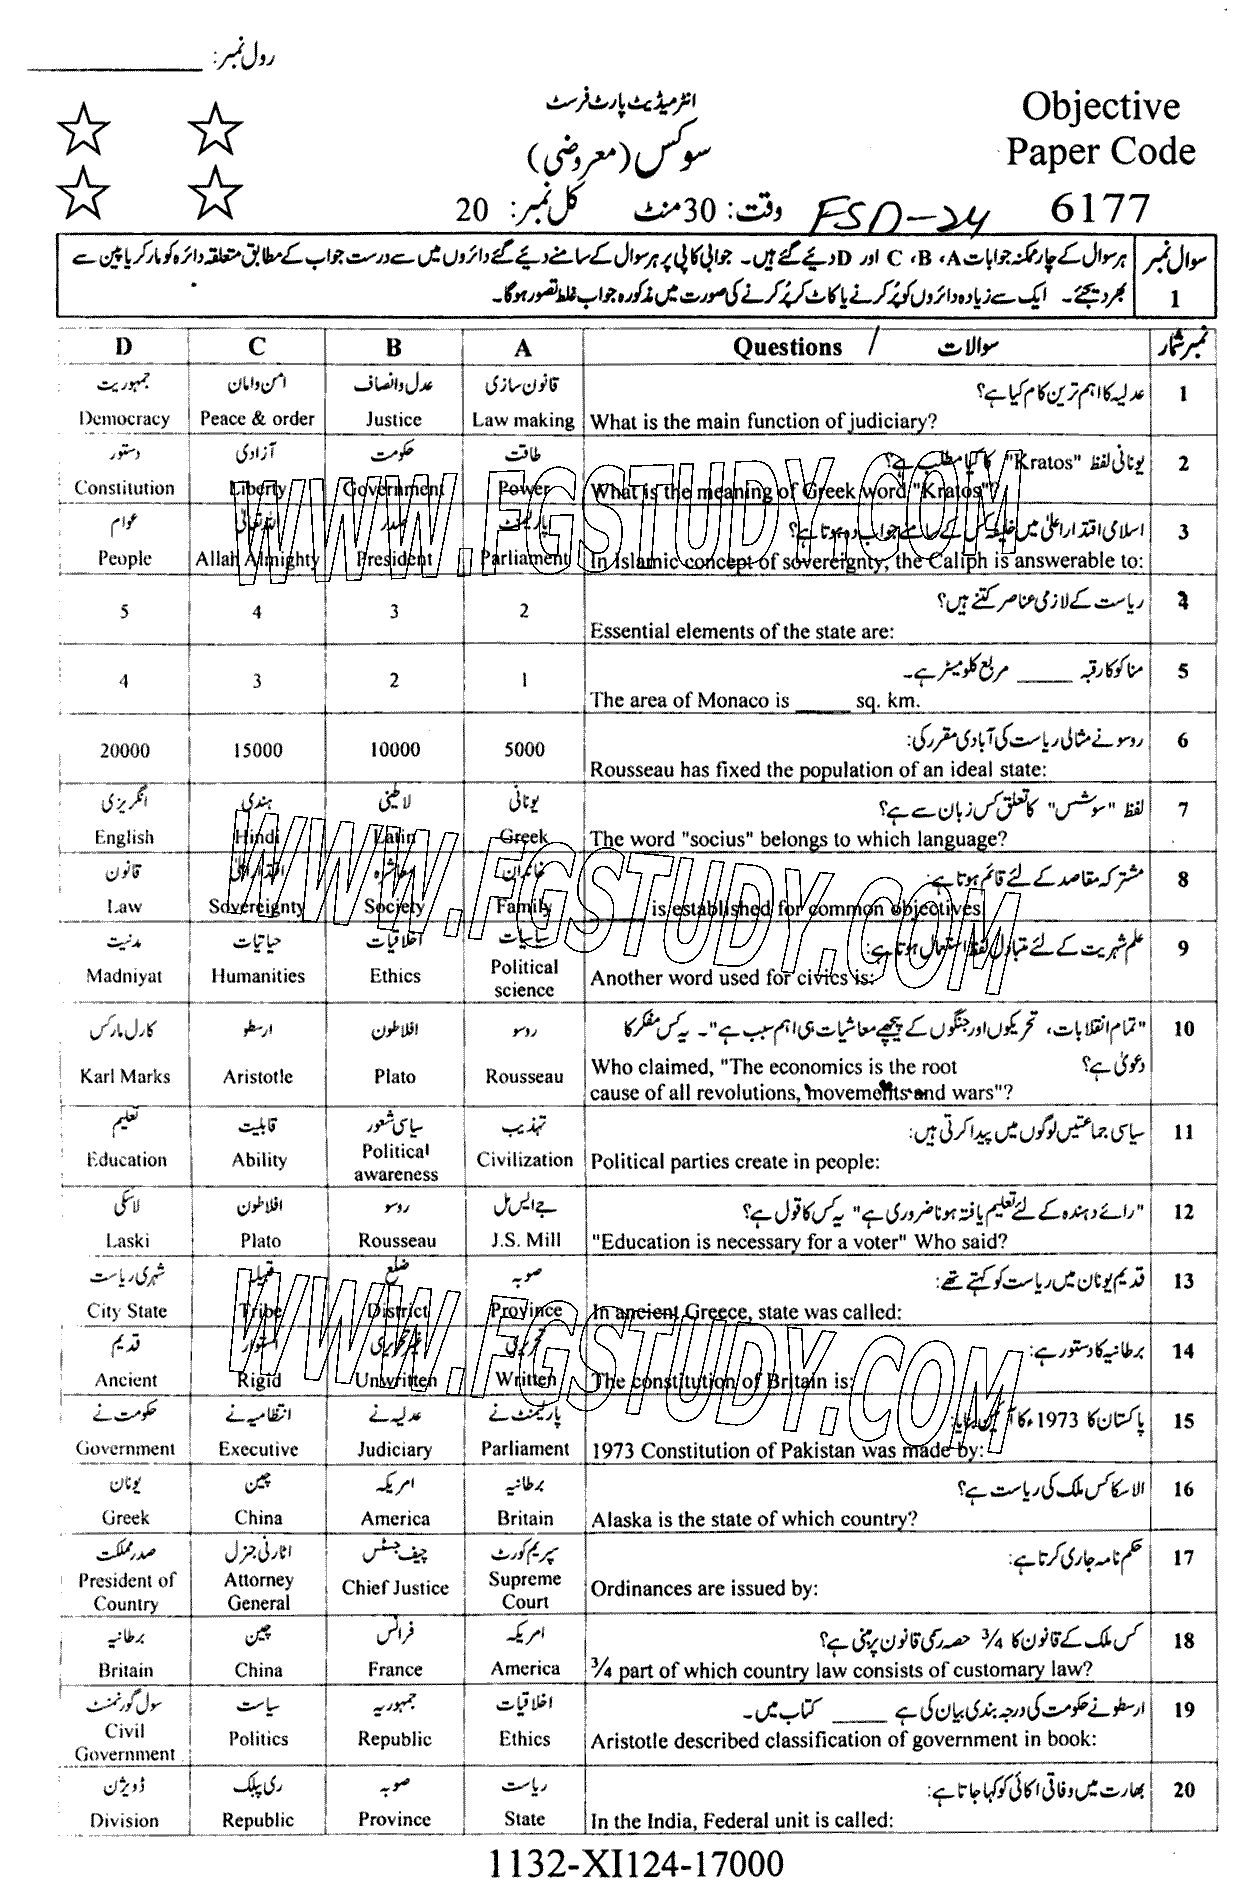 رول نمبر: ____________
انٹرمیڈیٹ پارٹ فرسٹ
Objective
سوکس (معروضی)
Paper Code
وقت: 30 منٹ کل نمبر: 20
FSD-24
6177
سوال نمبر 1
ہر سوال کے چار ممکنہ جوابات A، B، C اور D دیئے گئے ہیں۔ جوابی کاپی پر ہر سوال کے سامنے دیئے گئے دائروں میں سے درست جواب کے مطابق متعلقہ دائرہ کو مارکر یا پین سے
بھر دیجئے۔ ایک سے زیادہ دائروں کو پُر کرنے یا کاٹ کر پُر کرنے کی صورت میں مذکورہ جواب غلط تصور ہوگا۔
نمبر شمار سوالات / Questions A B C D
1 عدلیہ کا اہم ترین کام کیا ہے؟ قانون سازی عدل و انصاف امن و امان جمہوریت
What is the main function of judiciary? Law making Justice Peace & order Democracy
2 یونانی لفظ "Kratos" کا کیا مطلب ہے؟ طاقت حکومت آزادی دستور
What is the meaning of Greek word "Kratos"? Power Government Liberty Constitution
3 اسلامی اقتدار اعلیٰ میں خلیفہ کس کے سامنے جواب دہ ہوتا ہے؟ پارلیمنٹ صدر اللہ تعالیٰ عوام
In Islamic concept of sovereignty, the Caliph is answerable to: Parliament President Allah Almighty People
4 ریاست کے لازمی عناصر کتنے ہیں؟
Essential elements of the state are: 2 3 4 5
5 مناکو کا رقبہ _____ مربع کلومیٹر ہے۔
The area of Monaco is _____ sq. km. 1 2 3 4
6 روسو نے مثالی ریاست کی آبادی مقرر کی:
Rousseau has fixed the population of an ideal state: 5000 10000 15000 20000
7 لفظ "سوشس" کا تعلق کس زبان سے ہے؟ یونانی لاطینی ہندی انگریزی
The word "socius" belongs to which language? Greek Latin Hindi English
8 مشترکہ مقاصد کے لئے قائم ہوتا ہے: خاندان معاشرہ اقتدار اعلیٰ قانون
_____ is established for common objectives Family Society Sovereignty Law
9 علم شہریت کے لئے متبادل لفظ استعمال ہوتا ہے: سیاسیات اخلاقیات حیاتیات مدنیت
Another word used for civics is: Political science Ethics Humanities Madniyat
10 "تمام انقلابات، تحریکوں اور جنگوں کے پیچھے معاشیات ہی اہم سبب ہے"۔ یہ کس مفکر کا روسو افلاطون ارسطو کارل مارکس
دعویٰ ہے؟ Who claimed, "The economics is the root
cause of all revolutions, movements and wars"? Rousseau Plato Aristotle Karl Marks
11 سیاسی جماعتیں لوگوں میں پیدا کرتی ہیں: تہذیب سیاسی شعور قابلیت تعلیم
Political parties create in people: Civilization Political awareness Ability Education
12 "رائے دہندہ کے لئے تعلیم یافتہ ہونا ضروری ہے" یہ کس کا قول ہے؟ جے ایس مل روسو افلاطون لاسکی
"Education is necessary for a voter" Who said? J.S. Mill Rousseau Plato Laski
13 قدیم یونان میں ریاست کو کہتے تھے: صوبہ ضلع قبیلہ شہری ریاست
In ancient Greece, state was called: Province District Tribe City State
14 برطانیہ کا دستور ہے: تحریری غیر تحریری استوار قدیم
The constitution of Britain is: Written Unwritten Rigid Ancient
15 پاکستان کا 1973ء کا آئین بنایا: پارلیمنٹ نے عدلیہ نے انتظامیہ نے حکومت نے
1973 Constitution of Pakistan was made by: Parliament Judiciary Executive Government
16 الاسکا کس ملک کی ریاست ہے؟ برطانیہ امریکہ چین یونان
Alaska is the state of which country? Britain America China Greek
17 حکم نامہ جاری کرتا ہے: سپریم کورٹ چیف جسٹس اٹارنی جنرل صدر مملکت
Ordinances are issued by: Supreme Court Chief Justice Attorney General President of Country
18 کس ملک کے قانون کا ¾ حصہ رسمی قانون پر مبنی ہے؟ امریکہ فرانس چین برطانیہ
¾ part of which country law consists of customary law? America France China Britain
19 ارسطو نے حکومت کی درجہ بندی بیان کی ہے _____ کتاب میں۔ اخلاقیات جمہوریہ سیاست سول گورنمنٹ
Aristotle described classification of government in book: Ethics Republic Politics Civil Government
20 بھارت میں وفاقی اکائی کو کہا جاتا ہے: ریاست صوبہ ری پبلک ڈویژن
In the India, Federal unit is called: State Province Republic Division
1132-XI124-17000
WWW.FGSTUDY.COM
WWW.FGSTUDY.COM
WWW.FGSTUDY.COM